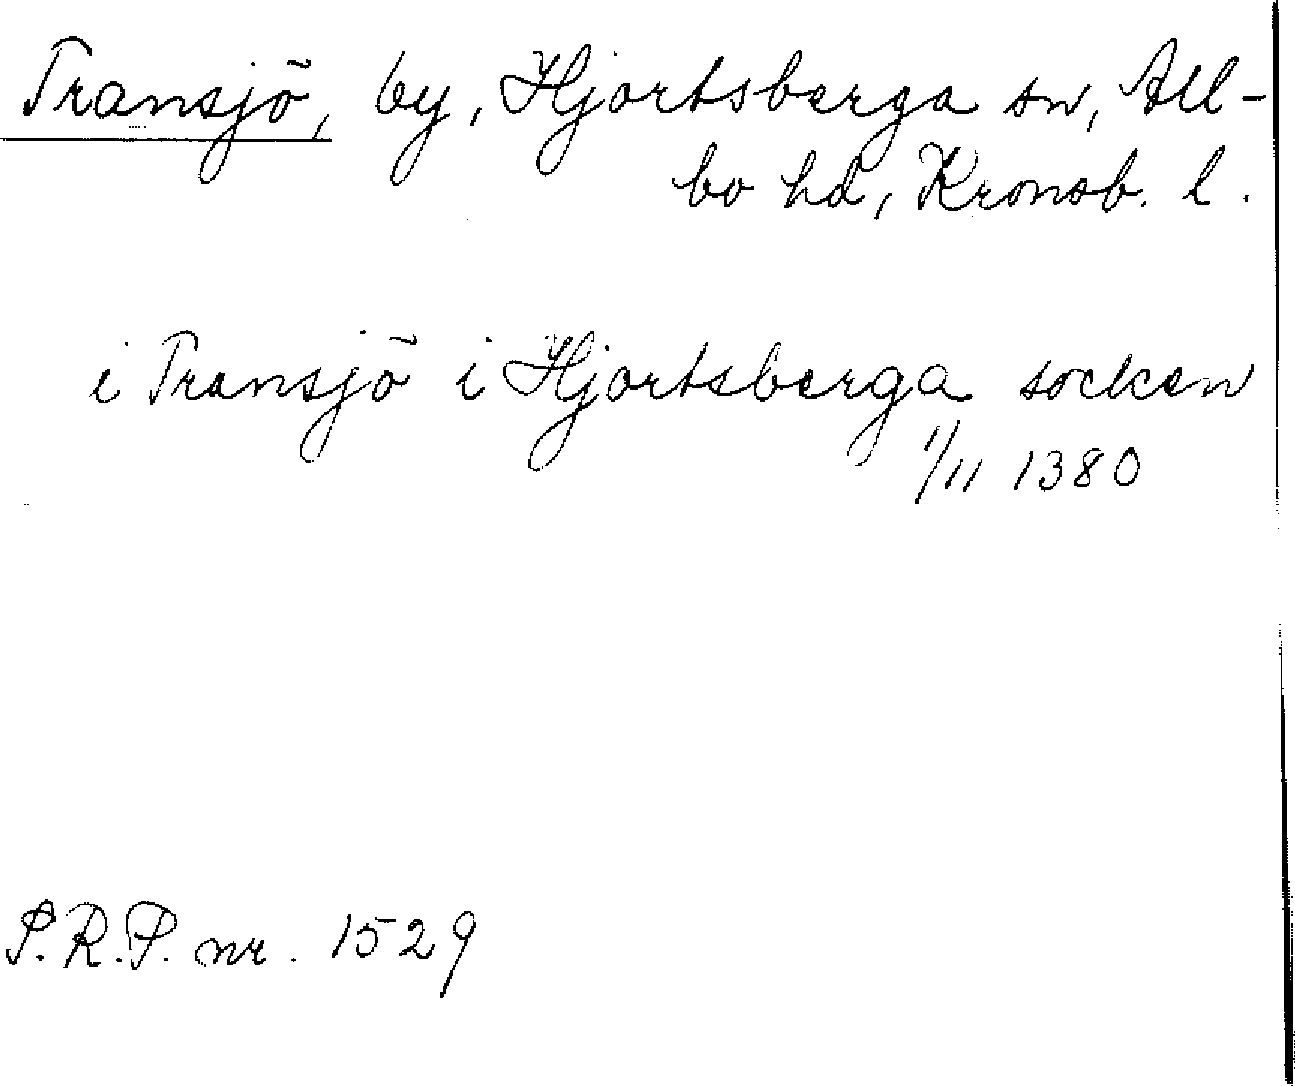 Transjö, by, Hjortsberga sn, All-
bo hd, Kronob. l.
i Transjö i Hjortsberga socken
1/11 1380
P.R.P. nr. 1529